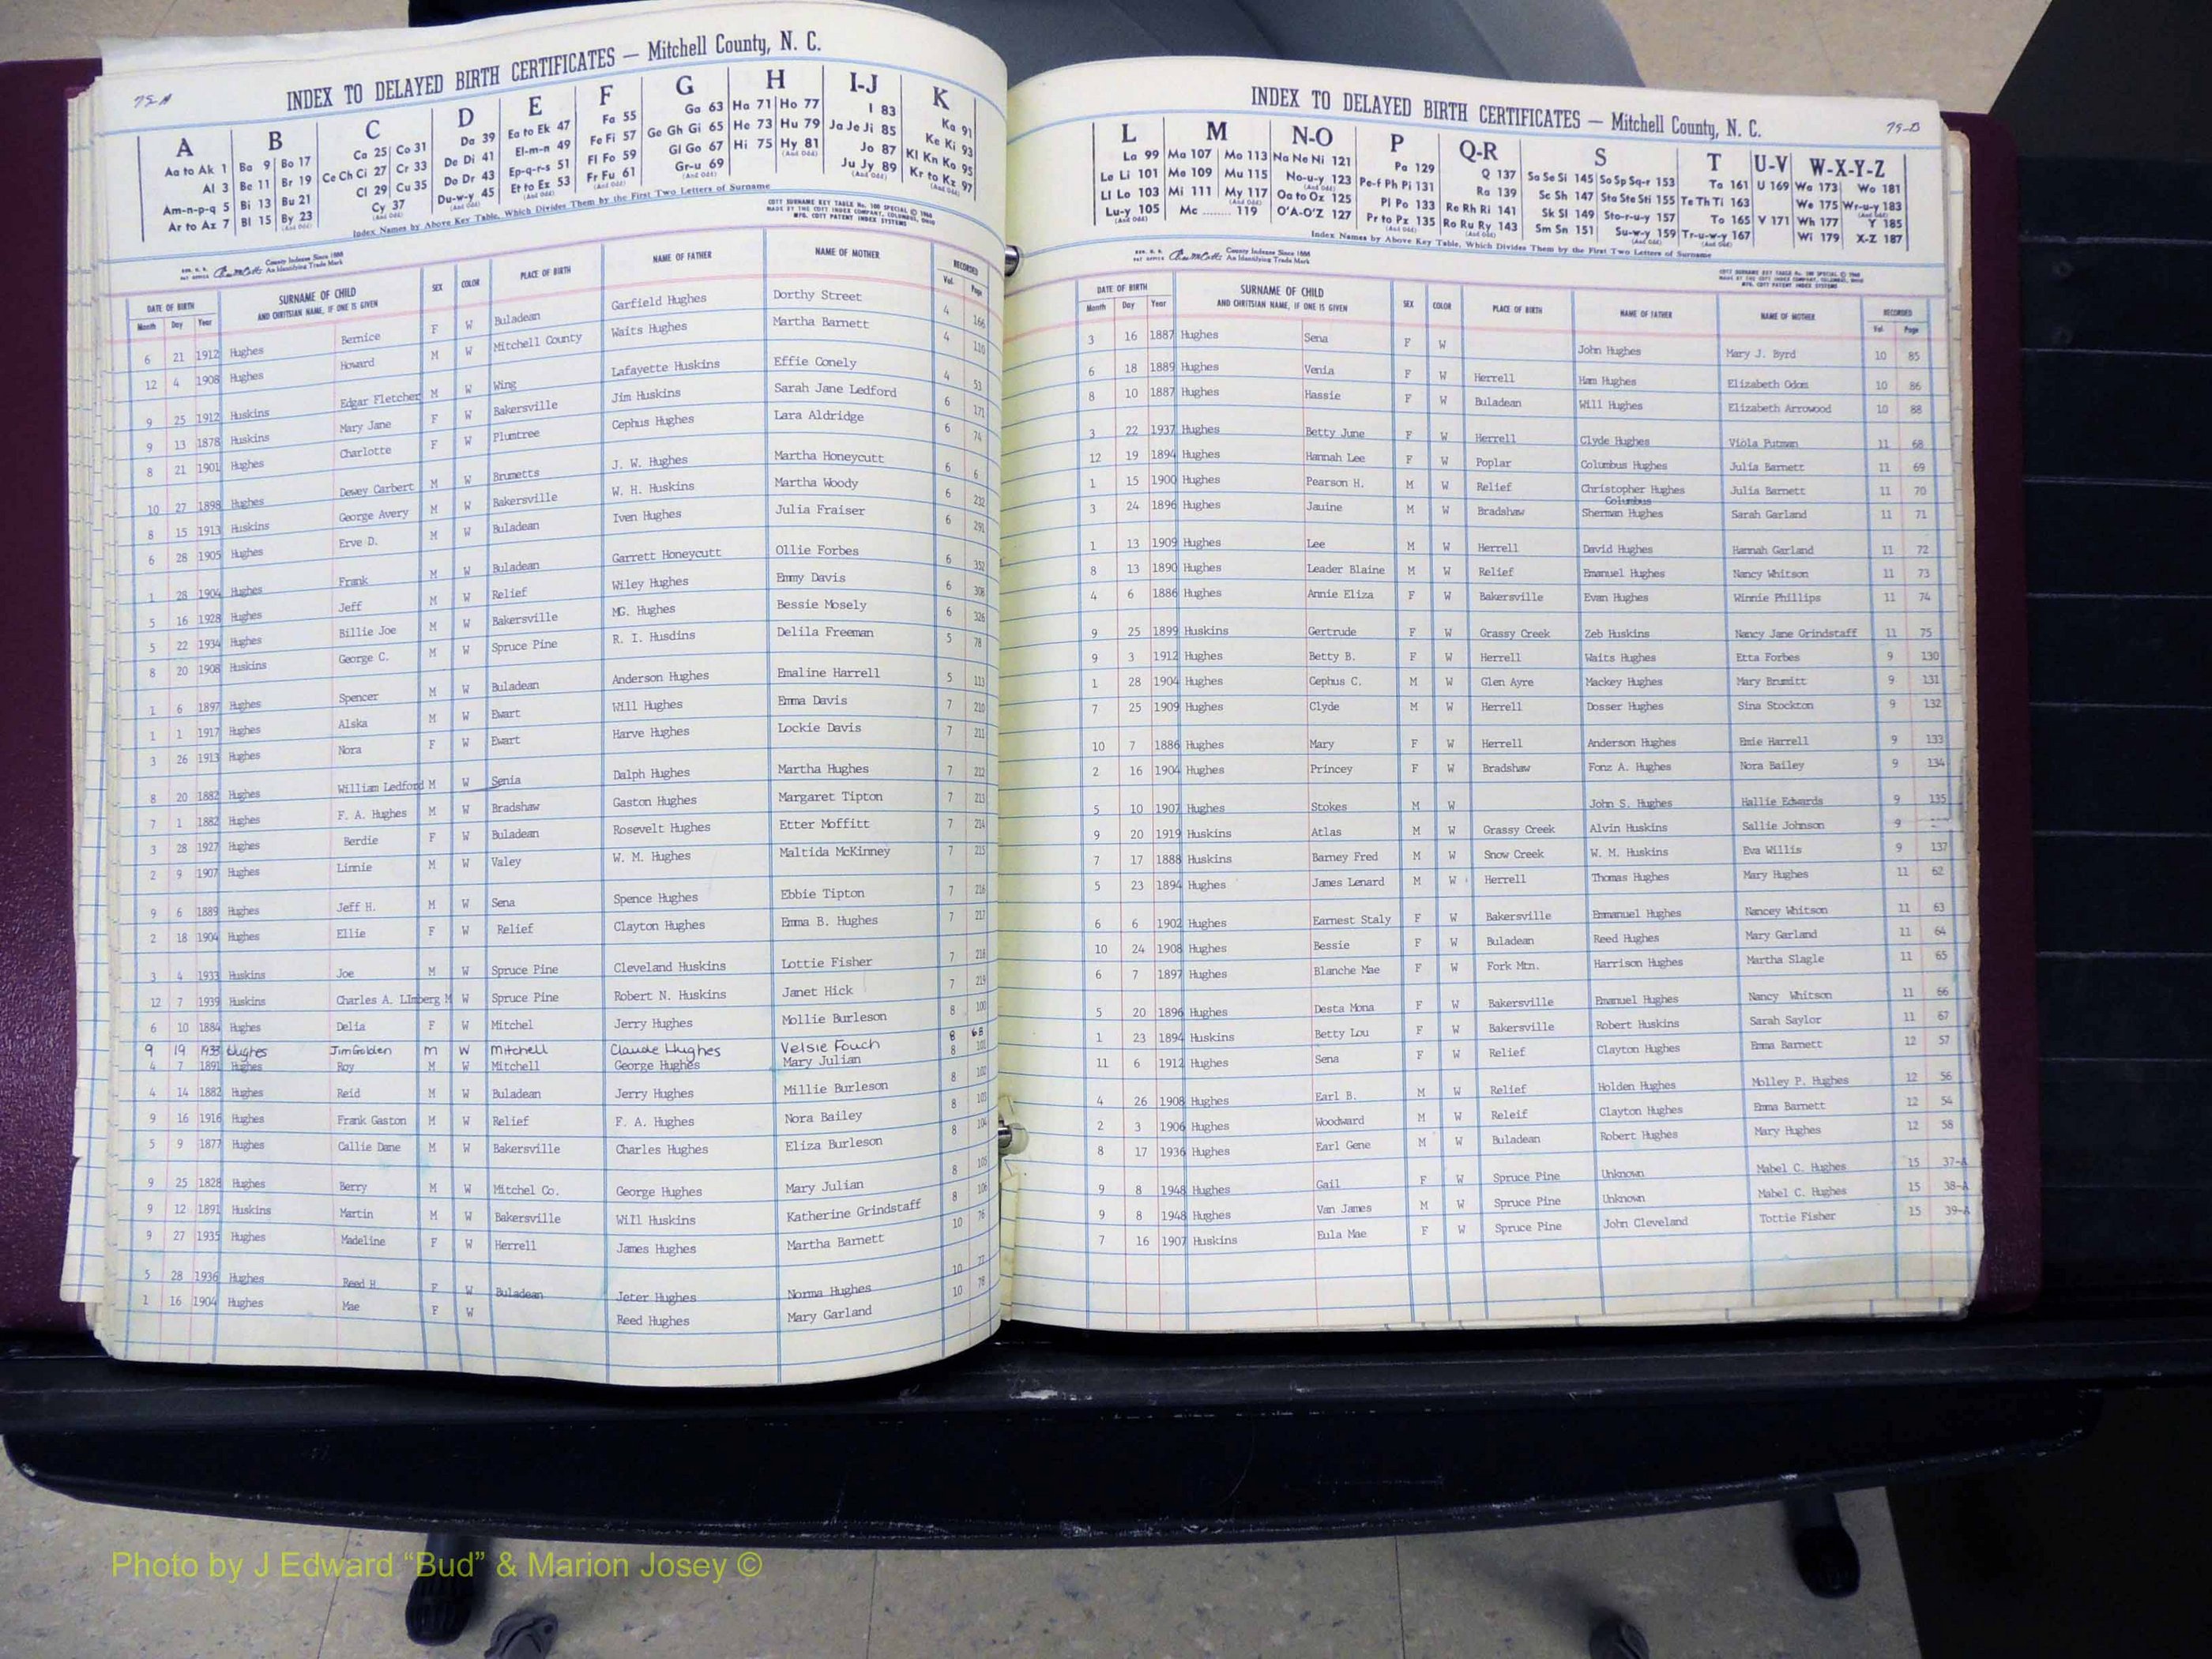 79-A
INDEX TO DELAYED BIRTH CERTIFICATES — Mitchell County, N. C.
A B C D E F G H I-J K
Aa to Ak 1 Ba 9 Bo 17 Ca 25 Co 31 Da 39 Ea to Ek 47 Fa 55 Ga 63 Ha 71 Ho 77 I 83 Ka 91
Al 3 Be 11 Br 19 Ce Ch Ci 27 Cr 33 De Di 41 El-m-n 49 Fe Fi 57 Ge Gh Gi 65 He 73 Hu 79 Ja Je Ji 85 Ke Ki 93
Am-n-p-q 5 Bi 13 Bu 21 Cl 29 Cu 35 Do Dr 43 Ep-q-r-s 51 Fl Fo 59 Gl Go 67 Hi 75 Hy 81 Jo 87 Kl Kn Ko 95
Ar to Az 7 Bl 15 By 23 Cy 37 Du-w-y 45 Et to Ez 53 Fr Fu 61 Gr-u 69 Ju Jy 89 Kr to Kz 97
Index Names by Above Key Table, Which Divides Them by the First Two Letters of Surname
County Indexes Since 1888
An Identifying Trade Mark
DATE OF BIRTH SURNAME OF CHILD SEX COLOR PLACE OF BIRTH NAME OF FATHER NAME OF MOTHER RECORDED
Month Day Year AND CHRITSIAN NAME, IF ONE IS GIVEN Vol. Page
6 21 1912 Hughes Bernice F W Buladean Garfield Hughes Dorthy Street 4 166
12 4 1908 Hughes Howard M W Mitchell County Waits Hughes Martha Barnett 4 110
9 25 1912 Huskins Edgar Fletcher M W Wing Lafayette Huskins Effie Conely 4 53
9 13 1878 Huskins Mary Jane F W Bakersville Jim Huskins Sarah Jane Ledford 6 171
8 21 1901 Hughes Charlotte F W Plumtree Cephus Hughes Lara Aldridge 6 74
10 27 1898 Hughes Dewey Carbert M W Brumetts J. W. Hughes Martha Honeycutt 6 6
8 15 1913 Huskins George Avery M W Bakersville W. H. Huskins Martha Woody 6 232
6 28 1905 Hughes Erve D. M W Buladean Iven Hughes Julia Fraiser 6 291
1 28 1904 Hughes Frank M W Buladean Garrett Honeycutt Ollie Forbes 6 352
5 16 1928 Hughes Jeff M W Relief Wiley Hughes Emmy Davis 6 306
5 22 1934 Hughes Billie Joe M W Bakersville MG. Hughes Bessie Mosely 6 326
8 20 1908 Huskins George C. M W Spruce Pine R. I. Husdins Delila Freeman 5 78
1 6 1897 Hughes Spencer M W Buladean Anderson Hughes Emaline Harrell 5 113
1 1 1917 Hughes Alska M W Ewart Will Hughes Emma Davis 7 210
3 26 1913 Hughes Nora F W Ewart Harve Hughes Lockie Davis 7 211
8 20 1882 Hughes William Ledford M W Senia Dalph Hughes Martha Hughes 7 212
7 1 1882 Hughes F. A. Hughes M W Bradshaw Gaston Hughes Margaret Tipton 7 213
3 28 1927 Hughes Berdie F W Buladean Rosevelt Hughes Etter Moffitt 7 214
2 9 1907 Hughes Linnie M W Valey W. M. Hughes Maltida McKinney 7 215
9 6 1889 Hughes Jeff H. M W Sena Spence Hughes Ebbie Tipton 7 216
2 18 1904 Hughes Ellie F W Relief Clayton Hughes Emma B. Hughes 7 217
3 4 1933 Huskins Joe M W Spruce Pine Cleveland Huskins Lottie Fisher 7 218
12 7 1939 Huskins Charles A. LImberg M W Spruce Pine Robert N. Huskins Janet Hick 7 219
6 10 1884 Hughes Delia F W Mitchel Jerry Hughes Mollie Burleson 8 100
9 19 1933 Hughes Jim Golden M W Mitchell Claude Hughes Velsie Fouch 8 68
4 7 1891 Hughes Roy M W Mitchell George Hughes Mary Julian 8 101
4 14 1882 Hughes Reid M W Buladean Jerry Hughes Millie Burleson 8 102
9 16 1916 Hughes Frank Gaston M W Relief F. A. Hughes Nora Bailey 8 103
5 9 1877 Hughes Callie Dane M W Bakersville Charles Hughes Eliza Burleson 8 104
9 25 1828 Hughes Berry M W Mitchel Co. George Hughes Mary Julian 8 105
9 12 1891 Huskins Martin M W Bakersville Will Huskins Katherine Grindstaff 8 106
9 27 1935 Hughes Madeline F W Herrell James Hughes Martha Barnett 10 76
5 28 1936 Hughes Reed H. F W Buladean Jeter Hughes Norma Hughes 10 77
1 16 1904 Hughes Mae F W Reed Hughes Mary Garland 10 78
INDEX TO DELAYED BIRTH CERTIFICATES — Mitchell County, N. C.
L M N-O P Q-R S T U-V W-X-Y-Z
La 99 Ma 107 Mo 113 Na Ne Ni 121 Pa 129 Q 137 Sa Se Si 145 So Sp Sq-r 153 Ta 161 U 169 Wa 173 Wo 181
Le Li 101 Me 109 Mu 115 No-u-y 123 Pe-f Ph Pi 131 Ra 139 Sc Sh 147 Sta Ste Sti 155 Te Th Ti 163 We 175 Wr-u-y 183
Ll Lo 103 Mi 111 My 117 Oa to Oz 125 Pl Po 133 Re Rh Ri 141 Sk Sl 149 Sto-r-u-y 157 To 165 V 171 Wh 177 Y 185
Lu-y 105 Mc 119 O'A-O'Z 127 Pr to Pz 135 Ro Ru Ry 143 Sm Sn 151 Su-w-y 159 Tr-u-w-y 167 Wi 179 X-Z 187
Index Names by Above Key Table, Which Divides Them by the First Two Letters of Surname
County Indexes Since 1888
An Identifying Trade Mark
DATE OF BIRTH SURNAME OF CHILD SEX COLOR PLACE OF BIRTH NAME OF FATHER NAME OF MOTHER RECORDED
Month Day Year AND CHRITSIAN NAME, IF ONE IS GIVEN Vol. Page
3 16 1887 Hughes Sena F W John Hughes Mary J. Byrd 10 85
6 18 1889 Hughes Venia F W Herrell Ham Hughes Elizabeth Odom 10 86
8 10 1887 Hughes Hassie F W Buladean Will Hughes Elizabeth Arrowood 10 88
3 22 1937 Hughes Betty June F W Herrell Clyde Hughes Viola Putman 11 68
12 19 1894 Hughes Hannah Lee F W Poplar Columbus Hughes Julia Barnett 11 69
1 15 1900 Hughes Pearson H. M W Relief Christopher Hughes Julia Barnett 11 70
Columbus
3 24 1896 Hughes Jauine M W Bradshaw Sherman Hughes Sarah Garland 11 71
1 13 1909 Hughes Lee M W Herrell David Hughes Hannah Garland 11 72
8 13 1890 Hughes Leader Blaine M W Relief Emanuel Hughes Nancy Whitson 11 73
4 6 1886 Hughes Annie Eliza F W Bakersville Evan Hughes Winnie Phillips 11 74
9 25 1899 Huskins Gertrude F W Grassy Creek Zeb Huskins Nancy Jane Grindstaff 11 75
9 3 1912 Hughes Betty B. F W Herrell Waits Hughes Etta Forbes 9 130
1 28 1904 Hughes Cephus C. M W Glen Ayre Mackey Hughes Mary Brumitt 9 131
7 25 1909 Hughes Clyde M W Herrell Dosser Hughes Sina Stockton 9 132
10 7 1886 Hughes Mary F W Herrell Anderson Hughes Emie Harrell 9 133
2 16 1904 Hughes Princey F W Bradshaw Fonz A. Hughes Nora Bailey 9 134
5 10 1907 Hughes Stokes M W John S. Hughes Hallie Edwards 9 135
9 20 1919 Huskins Atlas M W Grassy Creek Alvin Huskins Sallie Johnson 9
7 17 1888 Huskins Barney Fred M W Snow Creek W. M. Huskins Eva Willis 9 137
5 23 1894 Hughes James Lenard M W Herrell Thomas Hughes Mary Hughes 11 62
6 6 1902 Hughes Earnest Staly F W Bakersville Emmanuel Hughes Nancey Whitson 11 63
10 24 1908 Hughes Bessie F W Buladean Reed Hughes Mary Garland 11 64
6 7 1897 Hughes Blanche Mae F W Fork Mtn. Harrison Hughes Martha Slagle 11 65
5 20 1896 Hughes Desta Mona F W Bakersville Emanuel Hughes Nancy Whitson 11 66
1 23 1894 Huskins Betty Lou F W Bakersville Robert Huskins Sarah Saylor 11 67
11 6 1912 Hughes Sena F W Relief Clayton Hughes Emma Barnett 12 57
4 26 1908 Hughes Earl B. M W Relief Holden Hughes Molley P. Hughes 12 56
2 3 1906 Hughes Woodward M W Releif Clayton Hughes Emma Barnett 12 54
8 17 1936 Hughes Earl Gene M W Buladean Robert Hughes Mary Hughes 12 58
9 8 1948 Hughes Gail F W Spruce Pine Unknown Mabel C. Hughes 15 37-A
9 8 1948 Hughes Van James M W Spruce Pine Unknown Mabel C. Hughes 15 38-A
7 16 1907 Huskins Eula Mae F W Spruce Pine John Cleveland Tottie Fisher 15 39-A
Photo by J Edward “Bud” & Marion Josey ©